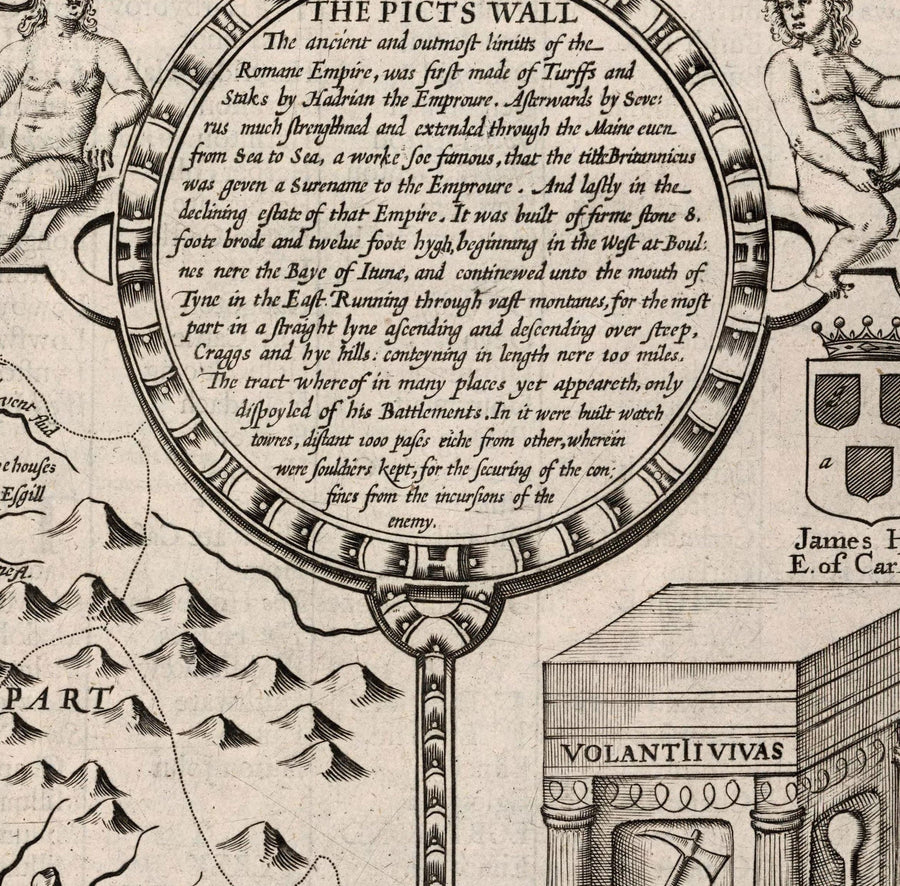 THE PICTS WALL
The ancient and outmost limitts of the
Romane Empire, was first made of Turffs and
Staks by Hadrian the Emproure. Afterwards by Seve:
rus much strengthned and extended through the Maine euen
from Sea to Sea, a worke soe famous, that the title Britannicus
was geven a Surename to the Emproure. And lastly in the
declining estate of that Empire. It was built of firme stone 8.
foote brode and twelue foote hygh, beginning in the West at Boul:
nes nere the Baye of Itunæ, and continewed unto the mouth of
Tyne in the East. Running through vast montanes, for the most
part in a straight lyne ascending and descending over steep,
Craggs and hye hills: conteyning in length nere 100 miles.
The tract whereof in many places yet appeareth, only
dispoyled of his Battlements. In it were built watch
towres, distant 1000 pases eiche from other, wherein
were souldiers kept, for the securing of the con:
fines from the incursions of the
enemy.
vent flud
e houses
Esgill
PART
a
James H
E. of Car
VOLANTII VIVAS